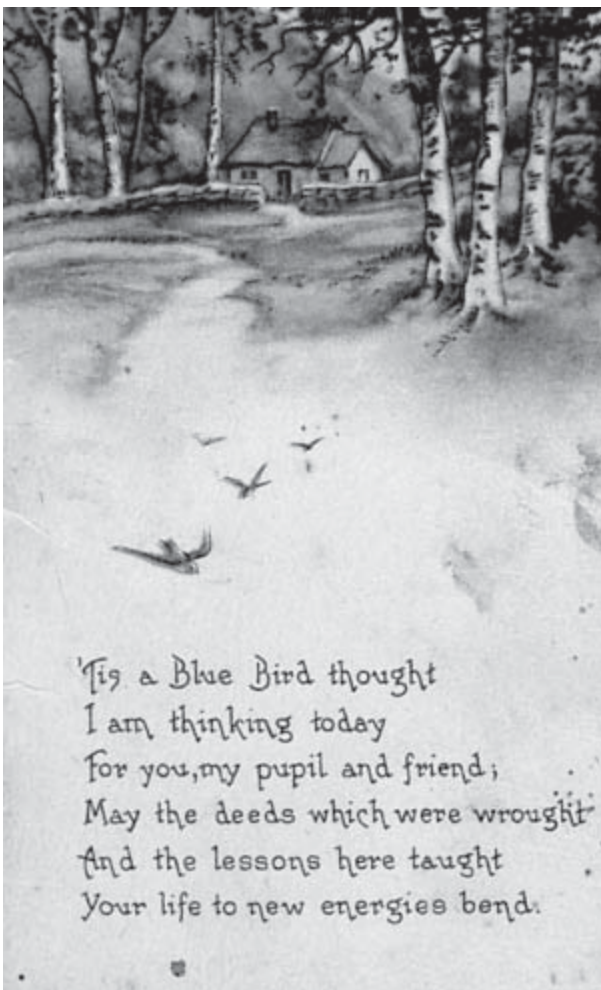 'Tis a Blue Bird thought
I am thinking today
For you, my pupil and friend;
May the deeds which were wrought
And the lessons here taught
Your life to new energies bend.